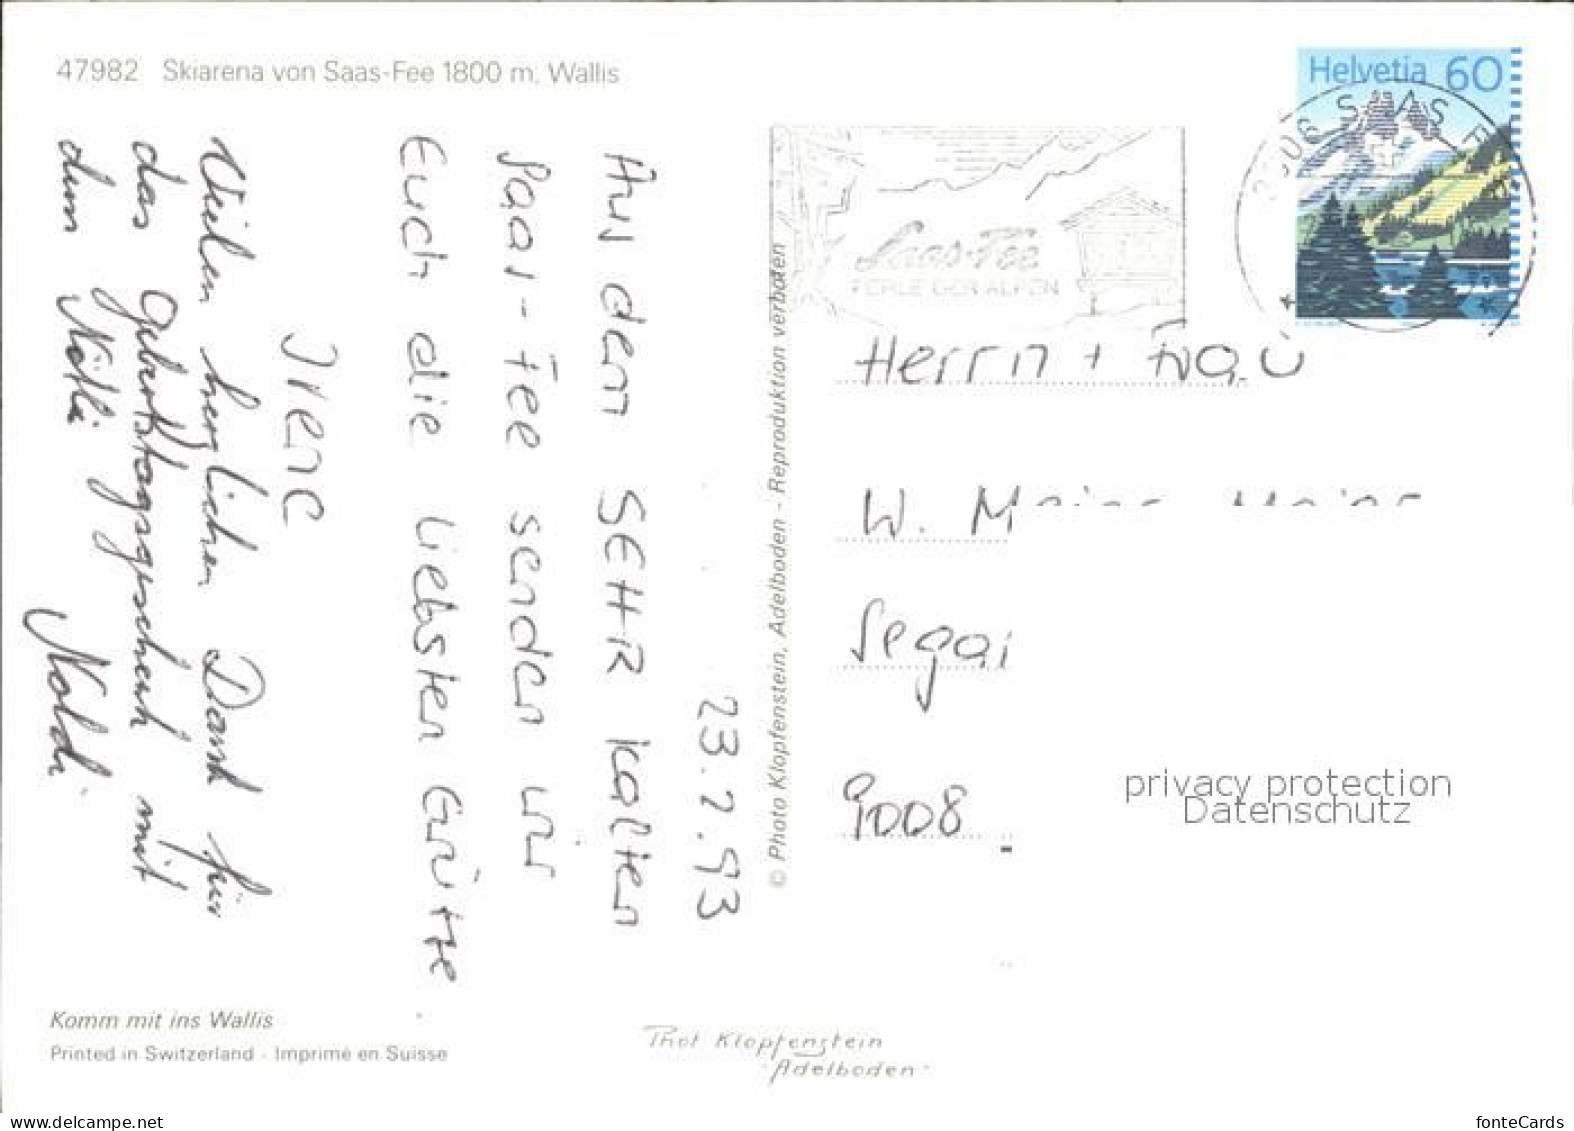 47982 Skiarena von Saas-Fee 1800 m, Wallis
Helvetia 60
3906 SAAS-F
Saas-Fee
PERLE DER ALPEN
23.2.93
AN den SEHR kalten
Saas-Fee senden wir
Euch die liebsten Grütte
Irene
Vielen herzlichen Dank für
das Geburtstagsgschenk mit
dum Nötli Noldi
© Photo Klopfenstein, Adelboden - Reproduktion verboten
Herrn + Frau
W. M
Segai
9008
privacy protection
Datenschutz
Komm mit ins Wallis
Printed in Switzerland - Imprimé en Suisse
Phot Klopfenstein
Adelboden
www.delcampe.net
fonteCards